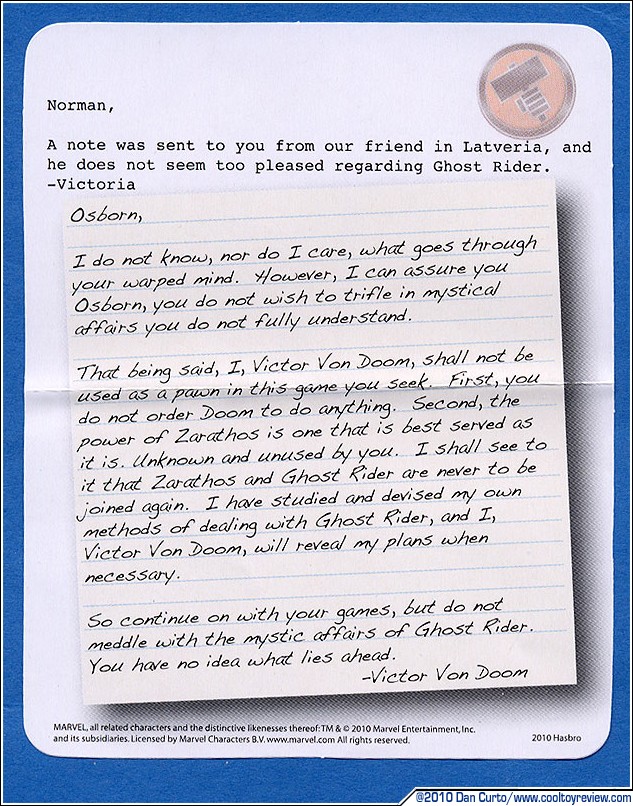 Norman,
A note was sent to you from our friend in Latveria, and
he does not seem too pleased regarding Ghost Rider.
-Victoria
Osborn,
I do not know, nor do I care, what goes through
your warped mind. However, I can assure you
Osborn, you do not wish to trifle in mystical
affairs you do not fully understand.
That being said, I, Victor Von Doom, shall not be
used as a pawn in this game you seek. First, you
do not order Doom to do anything. Second, the
power of Zarathos is one that is best served as
it is. Unknown and unused by you. I shall see to
it that Zarathos and Ghost Rider are never to be
joined again. I have studied and devised my own
methods of dealing with Ghost Rider, and I,
Victor Von Doom, will reveal my plans when
necessary.
So continue on with your games, but do not
meddle with the mystic affairs of Ghost Rider.
You have no idea what lies ahead.
-Victor Von Doom
MARVEL, all related characters and the distinctive likenesses thereof: TM & © 2010 Marvel Entertainment, Inc.
and its subsidiaries. Licensed by Marvel Characters B.V. www.marvel.com All rights reserved.
2010 Hasbro
@2010 Dan Curto/www.cooltoyreview.com